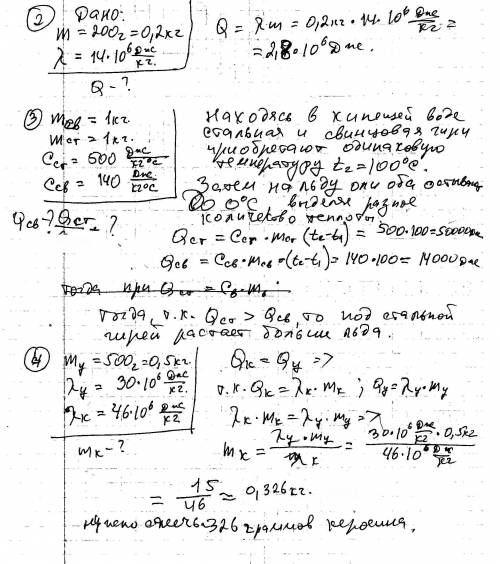 ② Дано:
m = 200г = 0,2кг
λ = 14·10⁶ Дж/кг
Q - ?
Q = λm = 0,2кг · 14·10⁶ Дж/кг =
= 2,8·10⁶ Дж.
③ mсв = 1кг
mст = 1кг.
Cст = 500 Дж/кг°C
Cсв = 140 Дж/кг°C
Qсв - ? Qст - ?
Находясь в кипящей воде
стальная и свинцовая гири
приобретают одинаковую
температуру t₂ = 100°C.
Затем на льду они оба
до 0°C, выделяя разное
количество теплоты
Qст = Cст · mст (t₂-t₁) = 500·100 = 50000 Дж
Qсв = Cсв · mсв · (t₂-t₁) = 140·100 = 14000 Дж
тогда при Qст = Cв · mв
тогда, т.к. Qст > Qсв, то под стальной
гирей растает больше льда.
④ mу = 500г = 0,5кг.
λу = 30·10⁶ Дж/кг
λк = 46·10⁶ Дж/кг
mк - ?
Qк = Qу =>
т.к. Qк = λк · mк ; Qу = λу · mу
λк · mк = λу · mу =>
mк = λу · mу / λк = 30·10⁶ Дж/кг · 0,5кг / 46·10⁶ Дж/кг
= 15/46 ≈ 0,326кг.
нужно сжечь 326 граммов керосина.